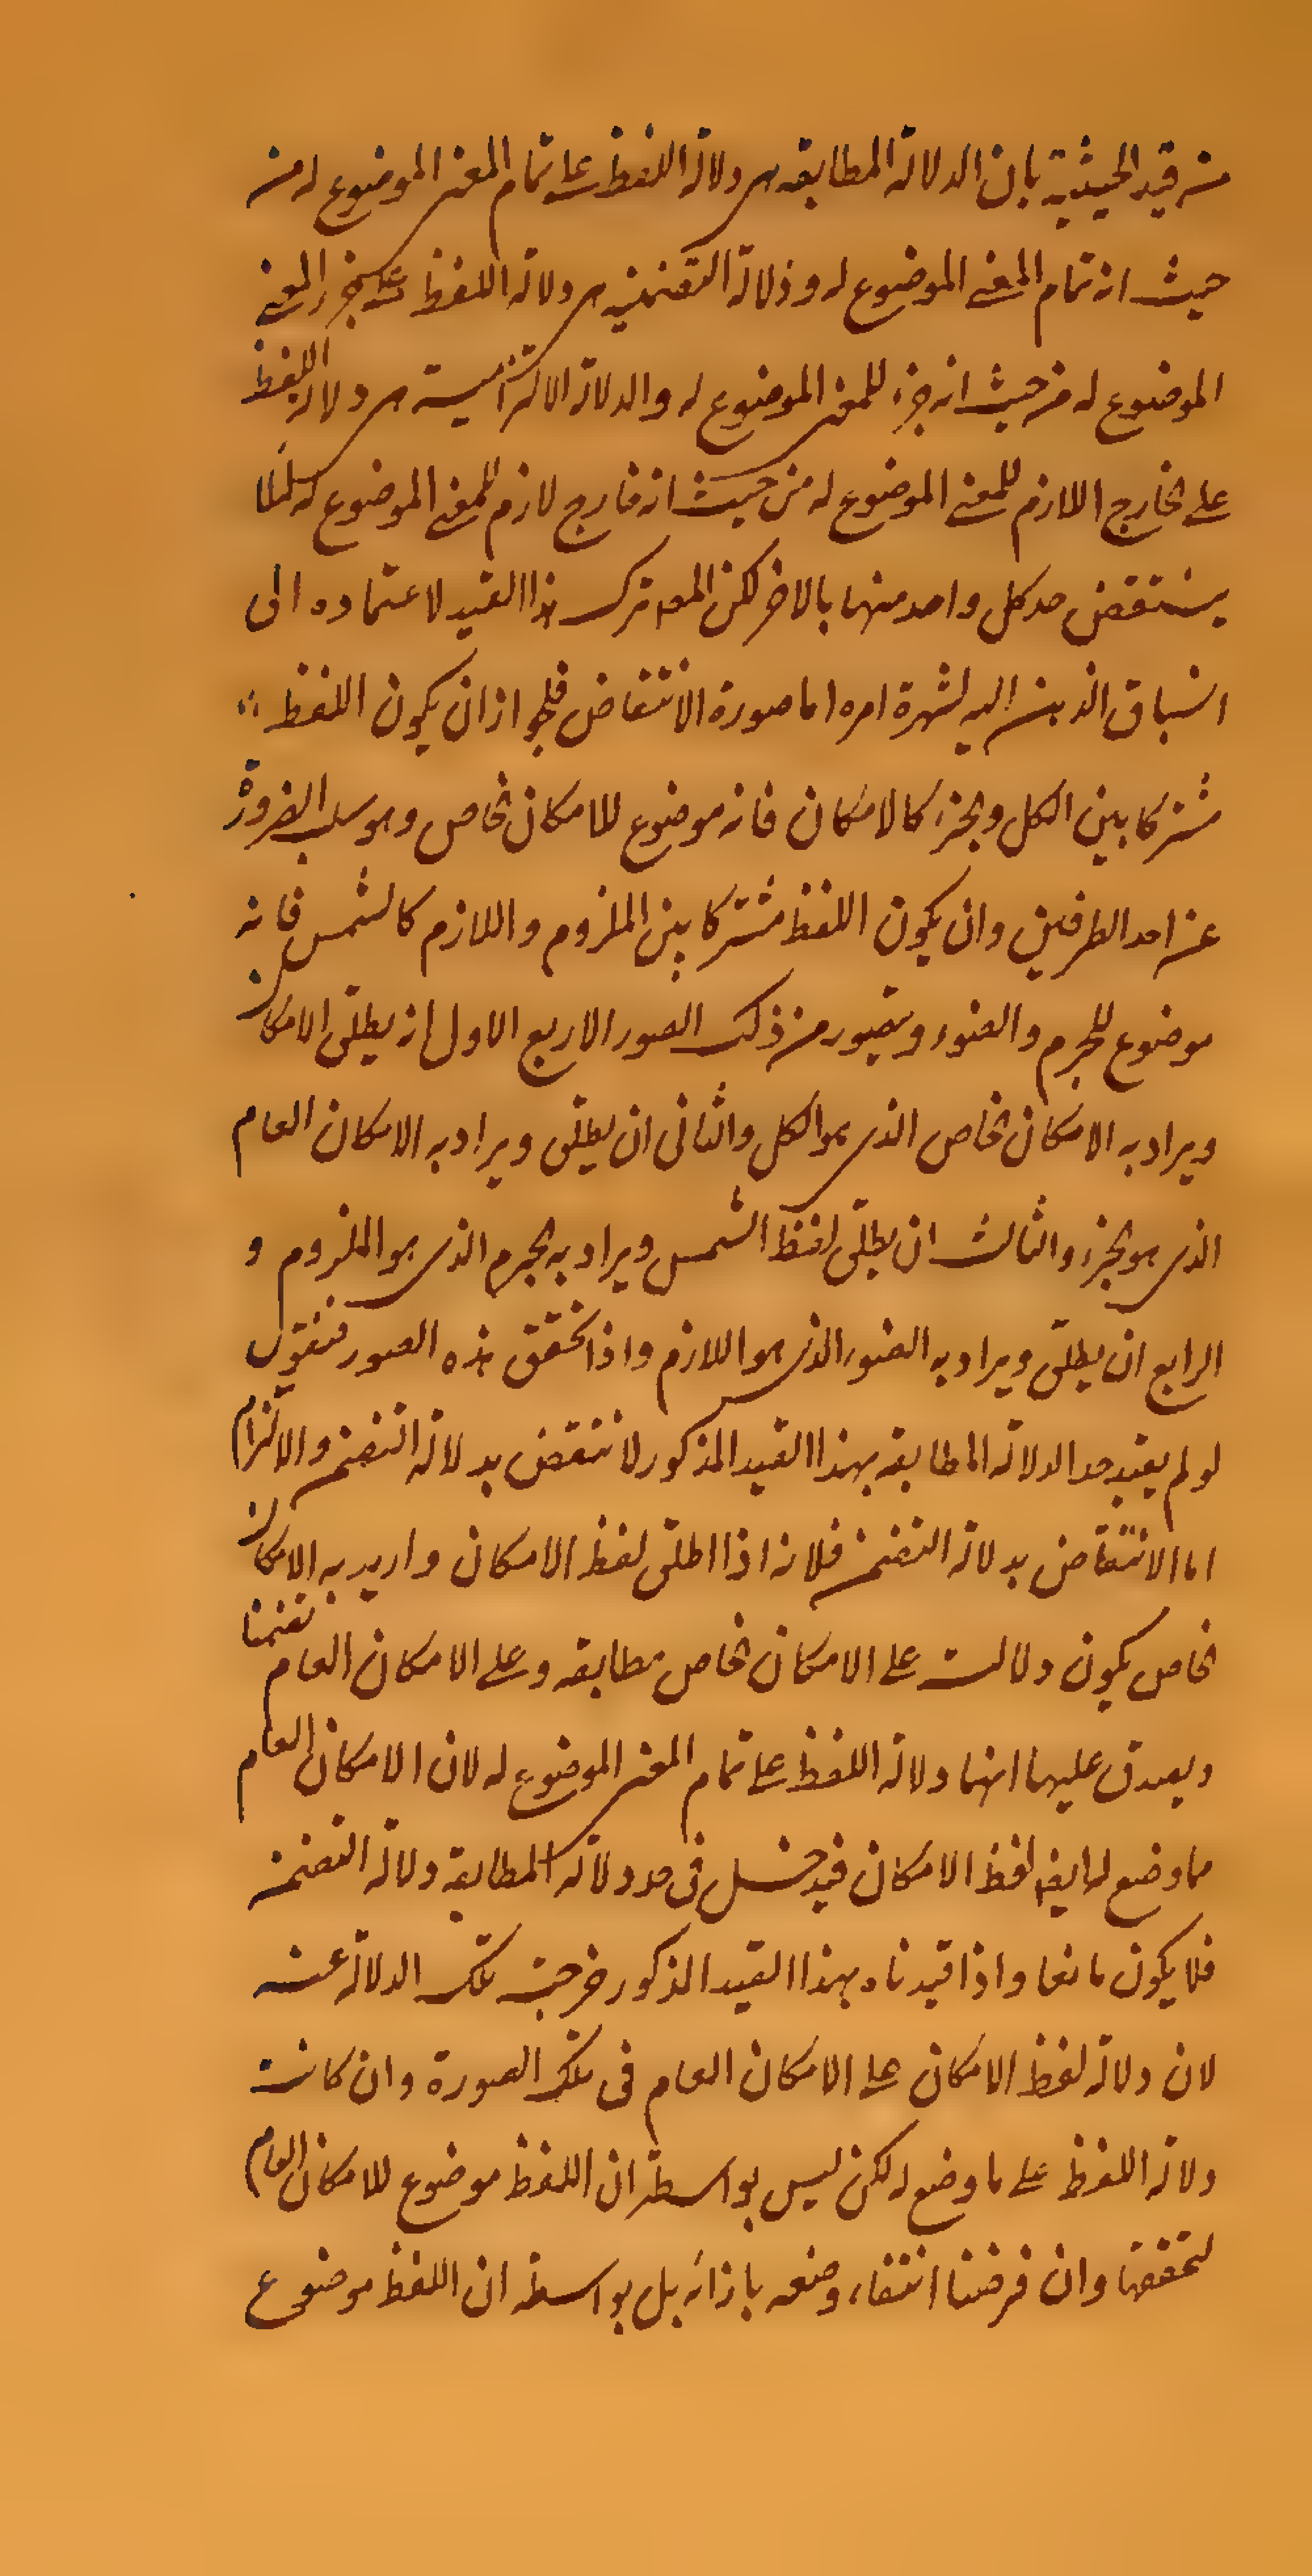 من قيد الحيثية بان الدلالة المطابقه هى دلالة اللفظ على تمام المعنى الموضوع له من
حيث انه تمام المعنى الموضوع له ودلالة التضمنيه هى دلالة اللفظ على جزء المعنى
الموضوع له من حيث انه جزء للمعنى الموضوع له والدلالة الالتزامية هى دلالة اللفظ
على الخارج اللازم للمعنى الموضوع له من حيث انه خارج لازم للمعنى الموضوع له لئلا
ينتقض حد كل واحد منها بالاخر لكن المصـ ترك هذا القيد لاعتماده الى
انسباق الذهن اليه لشهرة امره اما صورة الانتقاض فلجواز ان يكون اللفظ
مشتركا بين الكل والجزء كالامكان فانه موضوع للامكان الخاص وهو سلب الضرورة
عن احد الطرفين وان يكون اللفظ مشتركا بين الملزوم واللازم كالشمس فانه
موضوع للجرم والضوء ويتصور من ذلك الصور الاربع الاول ان يطلق الامكان
ويراد به الامكان الخاص الذى هو الكل والثانى ان يطلق ويراد به الامكان العام
الذى هو الجزء والثالث ان يطلق لفظ الشمس ويراد به الجرم الذى هو الملزوم و
الرابع ان يطلق ويراد به الضوء الذى هو اللازم واذا تحقق هذه الصور فنقول
لو لم يقيد حد الدلالة المطابقه بهذا القيد المذكور لانتقض بدلالة التضمن والالتزام
اما الانتقاض بدلالة التضمن فلانه اذا اطلق لفظ الامكان واريد به الامكان
الخاص يكون دلالته على الامكان الخاص مطابقه وعلى الامكان العام تضمنا
ويصدق عليها انها دلالة اللفظ على تمام المعنى الموضوع له لان الامكان العام
مما وضع له ايضا لفظ الامكان فيدخل فى حد دلالة المطابقة دلالة التضمن
فلا يكون مانعا واذا قيدناه بهذا القيد المذكور خرجت تلك الدلالة عنه
لان دلالة لفظ الامكان على الامكان العام فى تلك الصورة وان كانت
دلالة اللفظ على ما وضع له لكن ليس بواسطة ان اللفظ موضوع للامكان العام
لتحققها وان فرضنا انتفاء وضعه بازائه بل بواسطة ان اللفظ موضوع